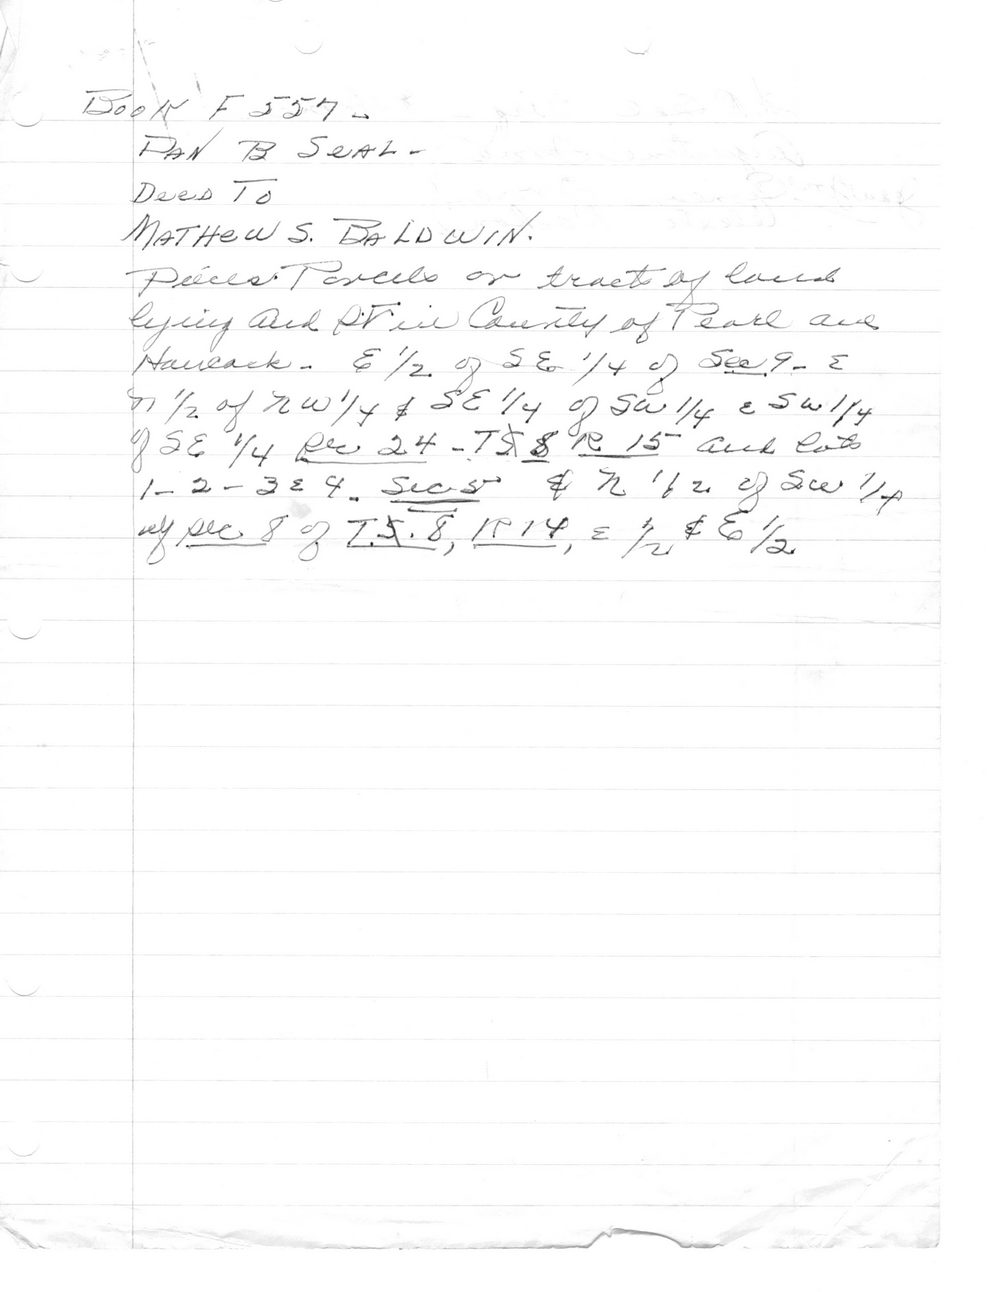 BOOK F 557 -
DAN B SEAL -
DEED TO
MATHEW S. BALDWIN.
Pieces Parcels or tract of land
lying and in County of Pearl and
Hancock - E 1/2 of SE 1/4 of Sec 9 - &
N 1/2 of NW 1/4 & SE 1/4 of SW 1/4 & SW 1/4
of SE 1/4 Sec 24 - TS 8 R 15 and lots
1 - 2 - 3 & 4. Sec 5 & N 1/2 of SW 1/4
of Sec 8 of T.S. 8, R 14, E 1/2 & E 1/2